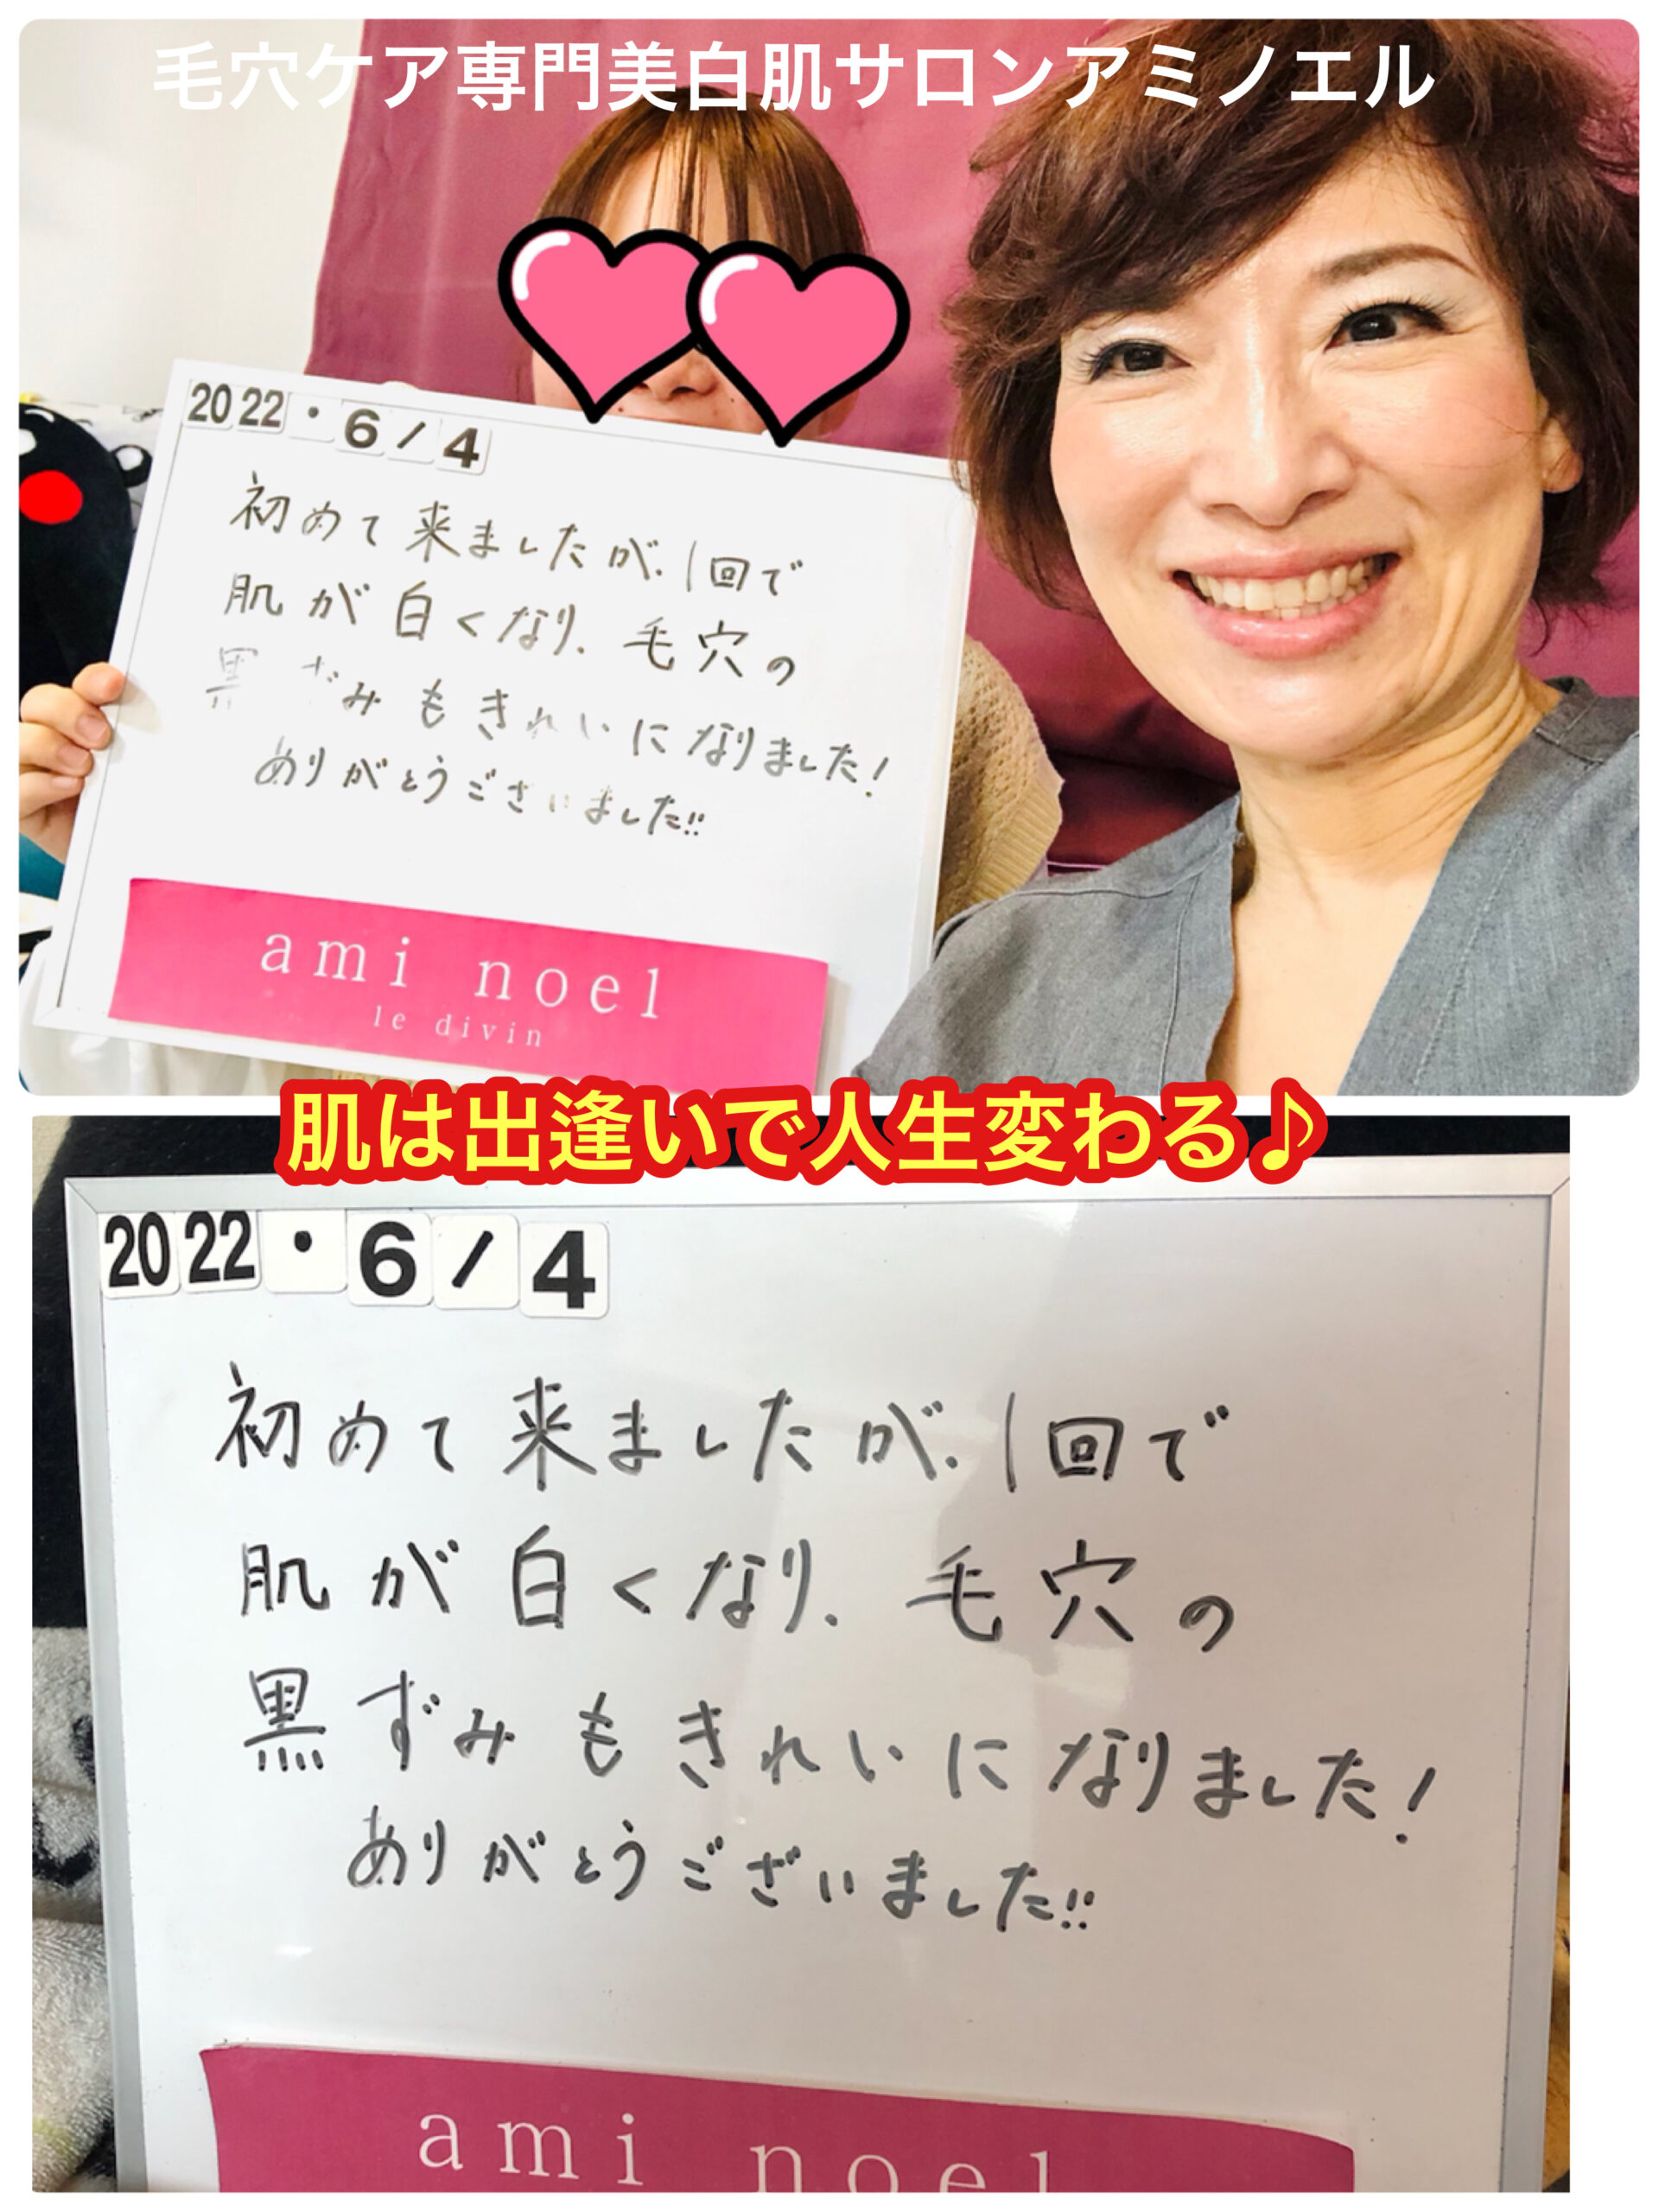 毛穴ケア専門美白肌サロンアミノエル
2022・6/4
初めて来ましたが、1回で
肌が白くなり、毛穴の
黒ずみもきれいになりました!
ありがとうございました!!
ami noel
le divin
肌は出逢いで人生変わる♪
2022・6/4
初めて来ましたが、1回で
肌が白くなり、毛穴の
黒ずみもきれいになりました!
ありがとうございました!!
ami noel